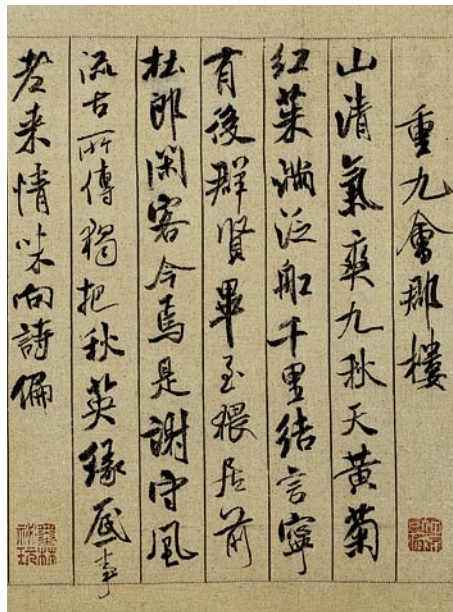 重九會郡樓
山清氣爽九秋天黃菊
紅茱滿泛船千里結言寧
有後群賢畢至猥居前
杜郎閑客今焉是謝守風
流古所傳獨把秋英緣底事
老來情味向詩偏
墨林祕玩